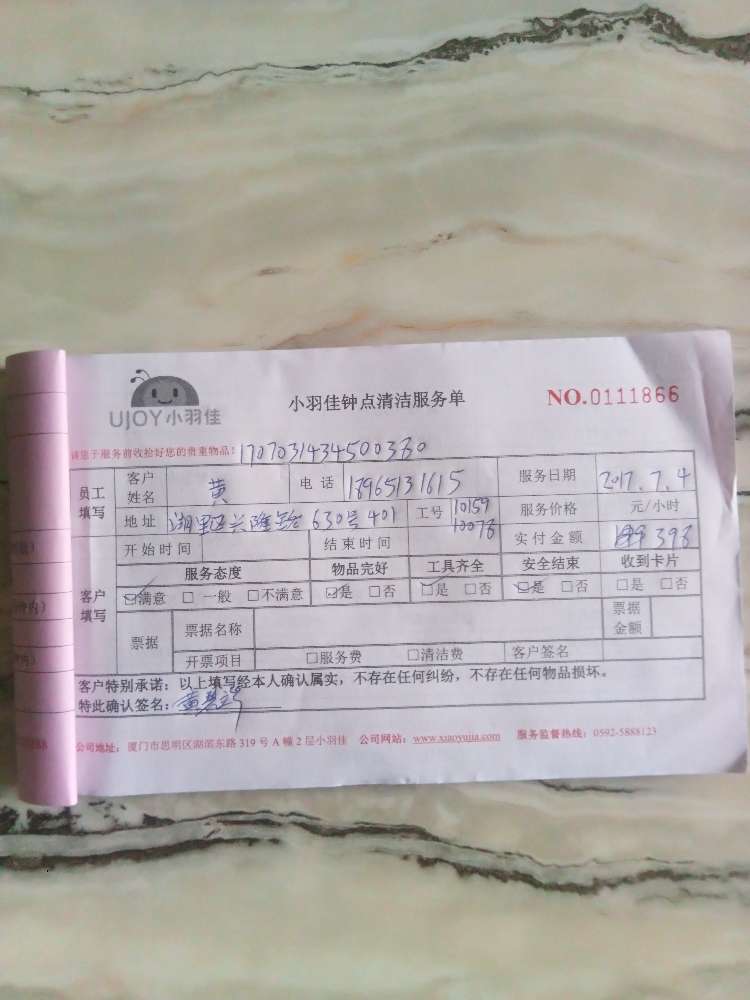 UJOY小羽佳
小羽佳钟点清洁服务单
NO.0111866
请您于服务前收拾好您的贵重物品! 1707031434500380
员工填写 客户姓名 黄 电话 18965131615 服务日期 2017.7.4
地址 湖里区兴隆路630号401 工号 10159 10078 服务价格 元/小时
开始时间 结束时间 实付金额 398
客户填写 服务态度 物品完好 工具齐全 安全结束 收到卡片
☑满意 □一般 □不满意 ☑是 □否 ☑是 □否 ☑是 □否 □是 □否
票据 票据名称 票据金额
开票项目 □服务费 □清洁费 客户签名
客户特别承诺：以上填写经本人确认属实，不存在任何纠纷，不存在任何物品损坏。
特此确认签名：黄
公司地址：厦门市思明区湖滨东路319号A幢2层小羽佳 公司网站：www.xiaoyujia.com 服务监督热线：0592-5888123